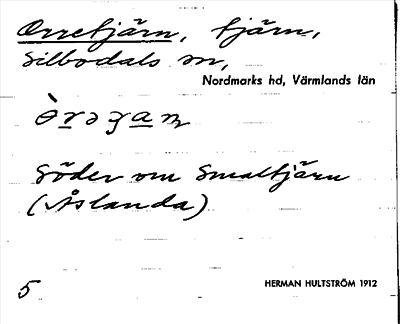 Orretjärn, tjärn,
Silbodals sn,
Nordmarks hd, Värmlands län
Söder om Smaltjärn
(Åslanda)
5
HERMAN HULTSTRÖM 1912